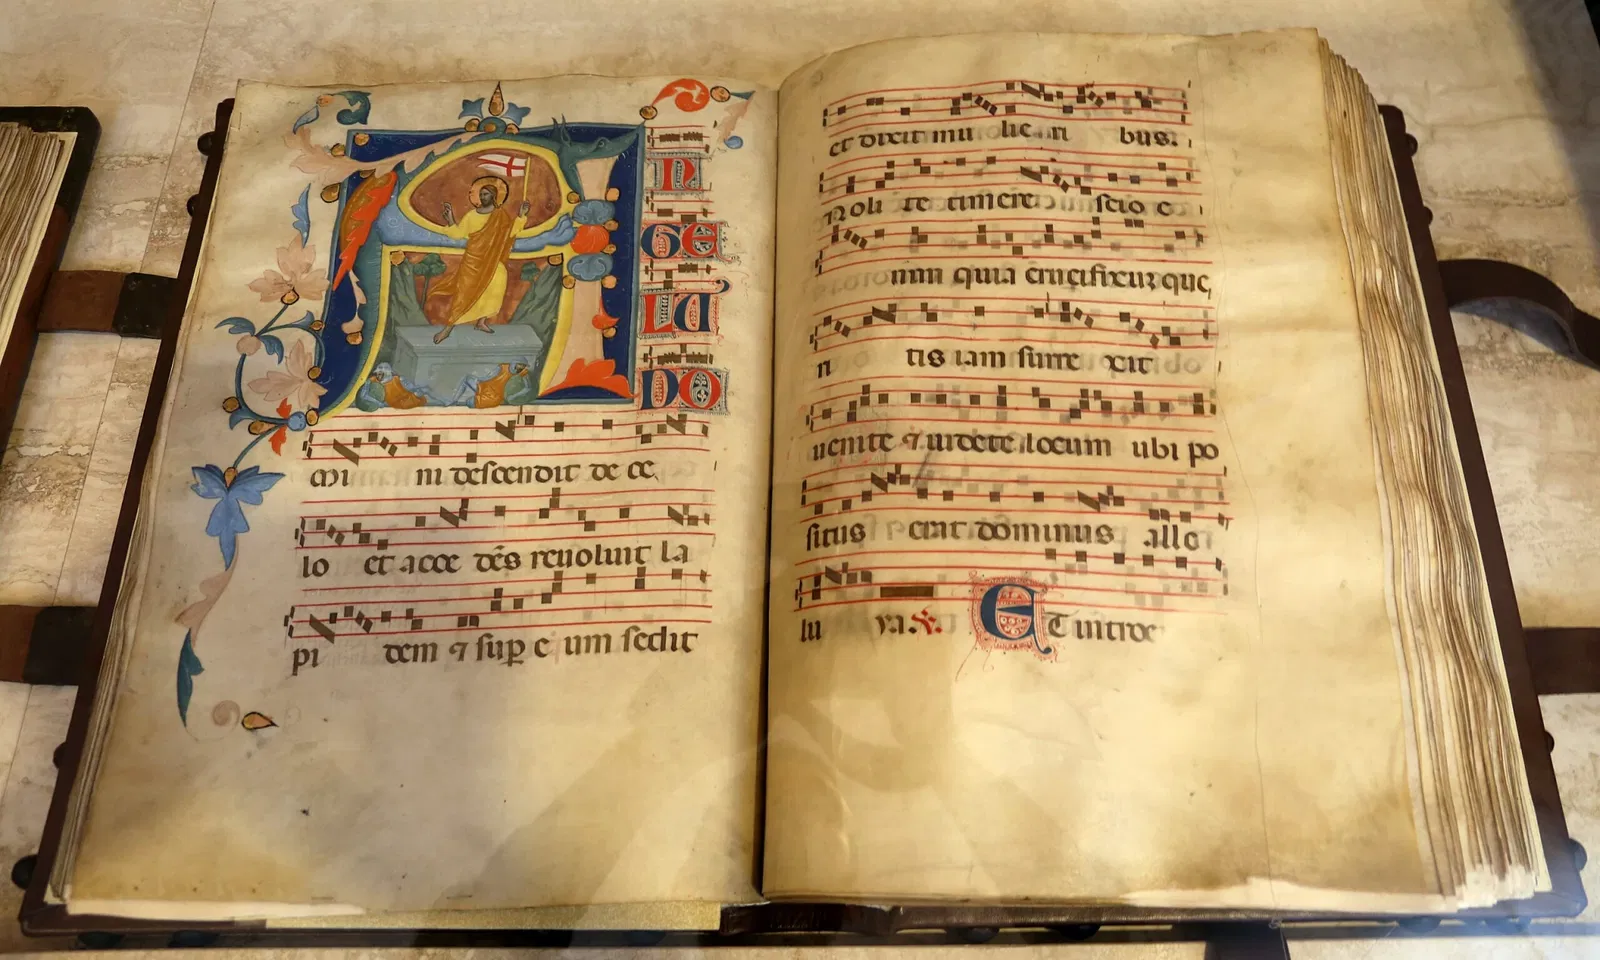 A
N
GE
LU
DO
mi ni descendit de ce
lo et acce dēs revoluit la
pi dem ⁊ sup e um sedit
et dixit mu lie ri bus.
Noli te timere scio e
nim quia crucifixum que
ri tis iam surre xit
venite ⁊ videte locum ubi po
situs erat dominus alle
lu ya. ℣. ET introe